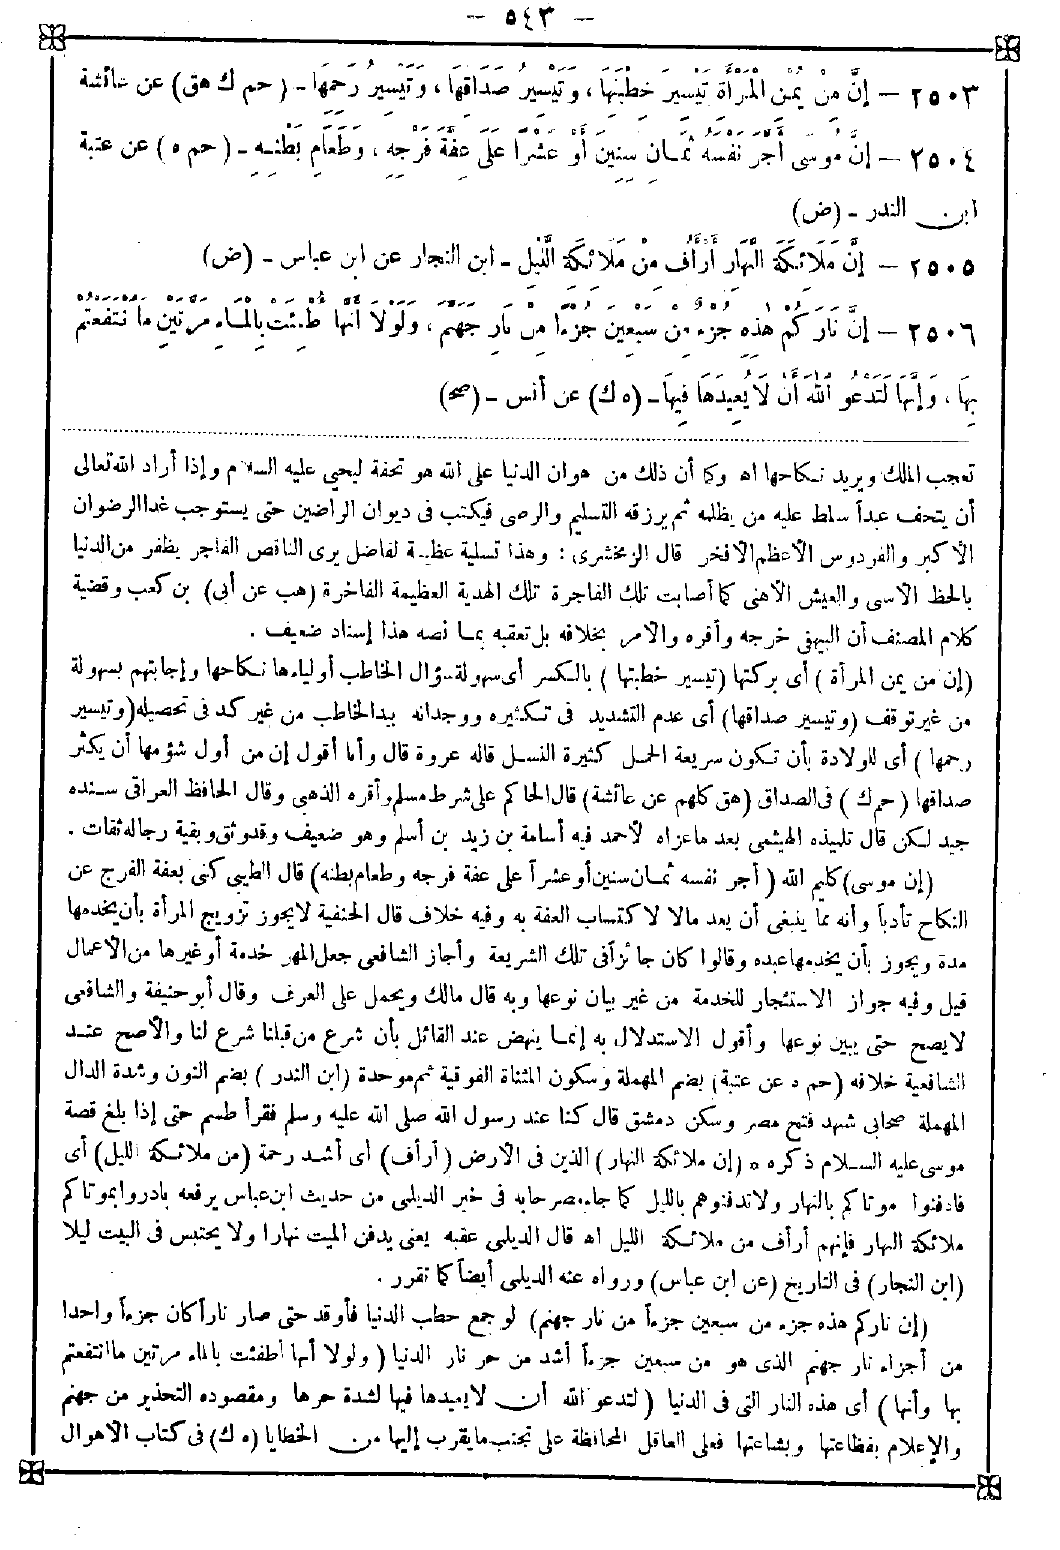 — ٥٤٣ —
٢٥٠٣ — إِنَّ مِنْ يُمْنِ الْمَرْأَةِ تَيْسِيرَ خِطْبَتِهَا، وَتَيْسِيرَ صَدَاقِهَا، وَتَيْسِيرَ رَحِمِهَا - (حم ك هق) عن عائشة
٢٥٠٤ — إِنَّ مُوسَى أَجَّرَ نَفْسَهُ ثَمَانِ سِنِينَ أَوْ عَشْرًا عَلَى عِفَّةِ فَرْجِهِ، وَطَعَامِ بَطْنِهِ - (حم ه) عن عتبة
ابن الندر - (ض)
٢٥٠٥ — إِنَّ مَلَائِكَةَ النَّهَارِ أَرْأَفُ مِنْ مَلَائِكَةِ اللَّيْلِ - ابن النجار عن ابن عباس - (ض)
٢٥٠٦ — إِنَّ نَارَكُمْ هَذِهِ جُزْءٌ مِنْ سَبْعِينَ جُزْءًا مِنْ نَارِ جَهَنَّمَ، وَلَوْلَا أَنَّهَا طُفِئَتْ بِالْمَاءِ مَرَّتَيْنِ مَا انْتَفَعْتُمْ
بِهَا، وَإِنَّهَا لَتَدْعُو اللَّهَ أَنْ لَا يُعِيدَهَا فِيهَا - (ه ك) عن أنس - (صح)
تعجب الملك ويريد نكاحها اه وكما أن ذلك من هوان الدنيا على الله هو تحفة ليحيى عليه السلام وإذا أراد الله تعالى
أن يتحف عبداً سلط عليه من يظلمه ثم يرزقه التسليم والرضى فيكتب فى ديوان الراضين حتى يستوجب غدا الرضوان
الأكبر والفردوس الأعظم الأفخر قال الزمخشرى : وهذا تسلية عظيمة لفاضل يرى الناقص الفاجر يظفر من الدنيا
بالحظ الأسى والعيش الأهنى كما أصابت تلك الفاجرة تلك الهدية العظيمة الفاخرة (هب عن أبى) بن كعب وقضية
كلام المصنف أن البيهقى خرجه وأقره والأمر بخلافه بل تعقبه بما نصه هذا إسناد ضعيف .
(إن من يمن المرأة ) أى بركتها (تيسير خطبتها ) بالكسر أى سهولة سؤال الخاطب أولياءها نكاحها وإجابتهم بسهولة
من غير توقف (وتيسير صداقها) أى عدم التشديد فى تكثيره ووجدانه بيد الخاطب من غير كد فى تحصيله (وتيسير
رحمها ) أى للولادة بأن تكون سريعة الحمل كثيرة النسل قاله عروة قال وأنا أقول إن من أول شؤمها أن يكثر
صداقها (حم ك ) فى الصداق (هق كلهم عن عائشة) قال الحاكم على شرط مسلم وأقره الذهبى وقال الحافظ العراقى سنده
جيد لكن قال تلميذه الهيثمى بعد ما عزاه لأحمد فيه أسامة بن زيد بن أسلم وهو ضعيف وقد وثق وبقية رجاله ثقات .
(إن موسى) كليم الله ( أجر نفسه ثمان سنين أو عشرا على عفة فرجه وطعام بطنه) قال الطيبى كنى بعفة الفرج عن
النكاح تأدباً وأنه مما ينبغى أن يعد مالا لاكتساب العفة به وفيه خلاف قال الحنفية لا يجوز تزويج المرأة بأن يخدمها
مدة ويجوز بأن يخدمها عبده وقالوا كان جائزاً فى تلك الشريعة وأجاز الشافعى جعل المهر خدمة أو غيرها من الأعمال
قيل وفيه جواز الاستئجار للخدمة من غير بيان نوعها وبه قال مالك ويحمل على العرف وقال أبو حنيفة والشافعى
لا يصح حتى يبين نوعها وأقول الاستدلال به إنما ينهض عند القائل بأن شرع من قبلنا شرع لنا والأصح عند
الشافعية خلافه (حم ه عن عتبة) بضم المهملة وسكون المثناة الفوقية ثم موحدة (ابن الندر ) بضم النون وشدة الدال
المهملة صحابى شهد فتح مصر وسكن دمشق قال كنا عند رسول الله صلى الله عليه وسلم فقرأ طسم حتى إذا بلغ قصة
موسى عليه السلام ذكره ه (إن ملائكة النهار ) الذين فى الأرض ( أرأف) أى أشد رحمة (من ملائكة الليل) أى
فادفنوا موتاكم بالنهار ولا تدفنوهم بالليل كما جاء مصرحا به فى خبر الديلمى من حديث ابن عباس يرفعه بادروا بموتاكم
ملائكة النهار فإنهم أرأف من ملائكة الليل اه قال الديلمى عقبه يعنى يدفن الميت نهارا ولا يحتبس فى البيت ليلا
(ابن النجار) فى التاريخ (عن ابن عباس) ورواه عنه الديلمى أيضاً كما تقرر .
(إن ناركم هذه جزء من سبعين جزءاً من نار جهنم) لو جمع حطب الدنيا فأوقد حتى صار ناراً كان جزءاً واحدا
من أجزاء نار جهنم الذى هو من سبعين جزءاً أشد من حر نار الدنيا ( ولولا أنها أطفئت بالماء مرتين ما انتفعتم
بها وأنها ) أى هذه النار التى فى الدنيا ( لتدعو الله أن لا يعيدها فيها لشدة حرها ومقصوده التحذير من جهنم
والإعلام بفظاعتها وبشاعتها فعلى العاقل المحافظة على تجنب ما يقرب إليها من الخطايا (ه ك) فى كتاب الأهوال